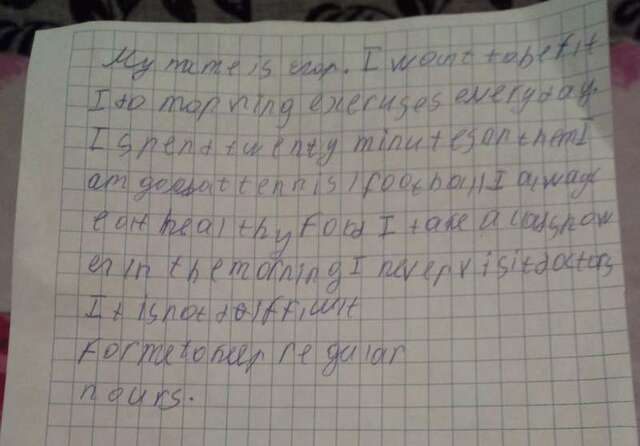 My name is Igor. I want to be fit
I to morning exercises every tay.
I spent twenty minutes on them I
am good at tennis football I always
eat healthy ford I take a cold show
er in the morning I never visit doctors
It is not difficult
for me to keep regular
hours.